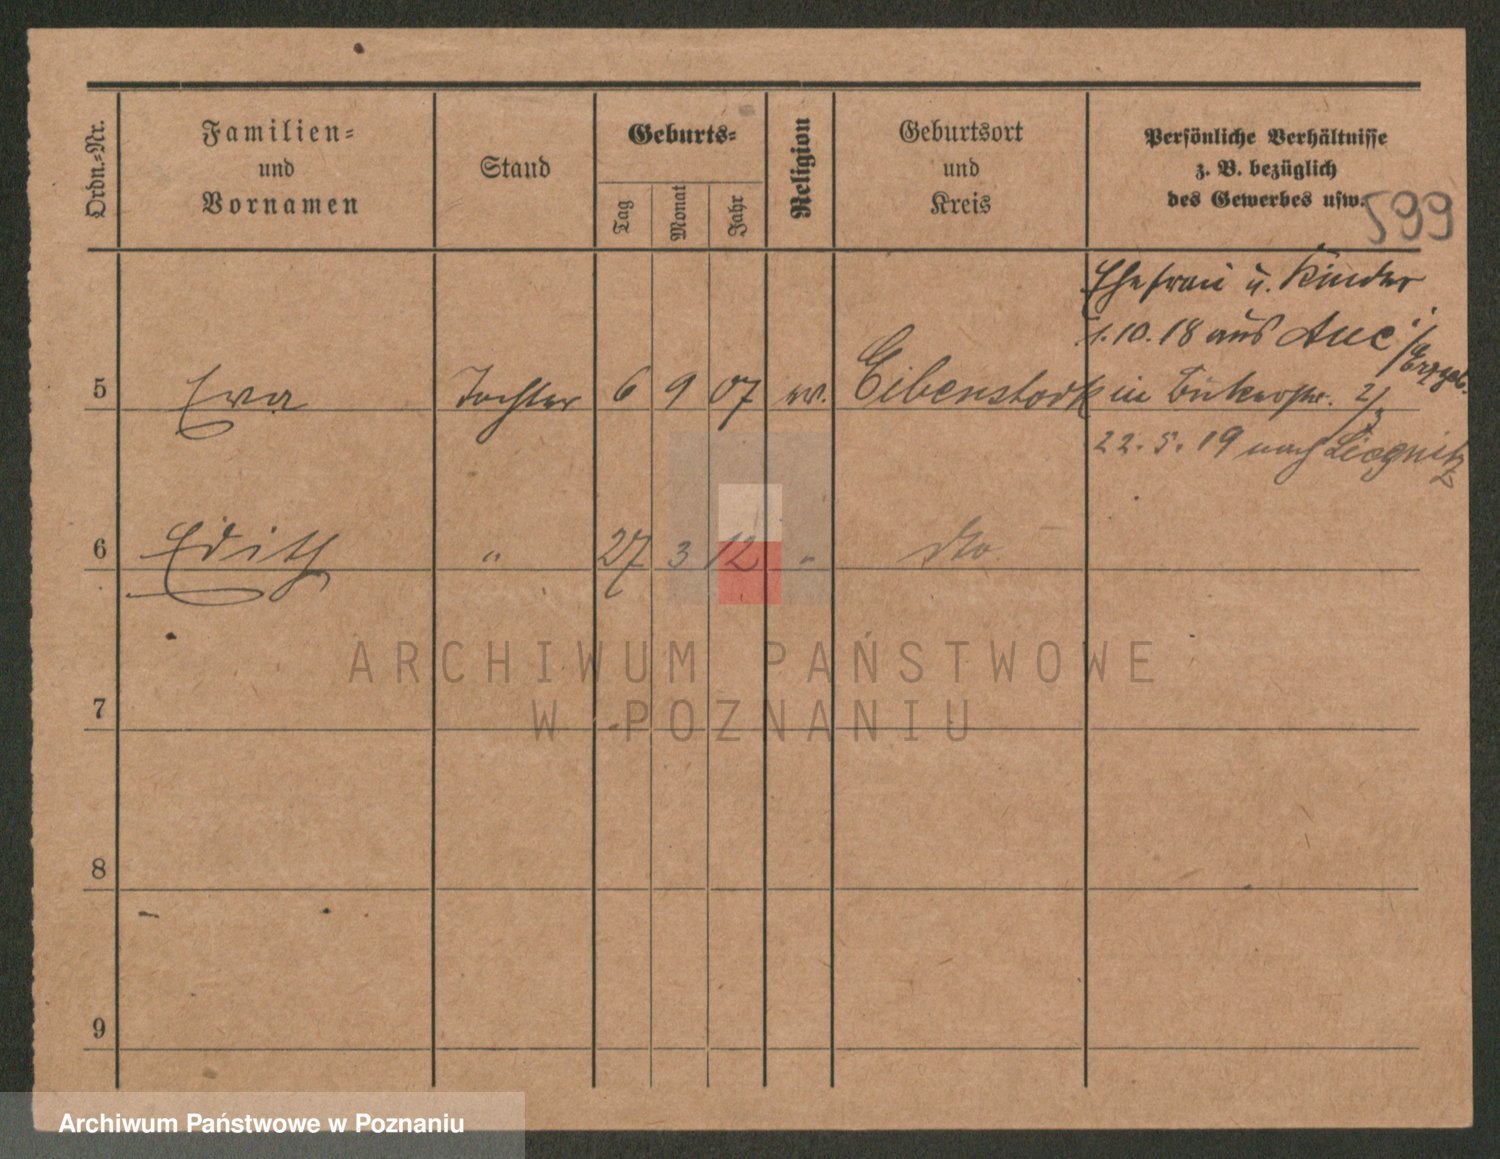 Ordn.-Nr.
Familien-
und
Vornamen
Stand
Geburts-
Tag
Monat
Jahr
Religion
Geburtsort
und
Kreis
Persönliche Verhältnisse
z. B. bezüglich
des Gewerbes usw.
599
Ehefrau u. Kinder
1.10.18 aus Aue i/Erzgeb.
5 Eva Tochter 6 9 07 ev. Eibenstock in 
22.5.19 nach Liegnitz
6 Edith " 27 3 12 " do.
7
8
9
ARCHIWUM PAŃSTWOWE
W POZNANIU
Archiwum Państwowe w Poznaniu